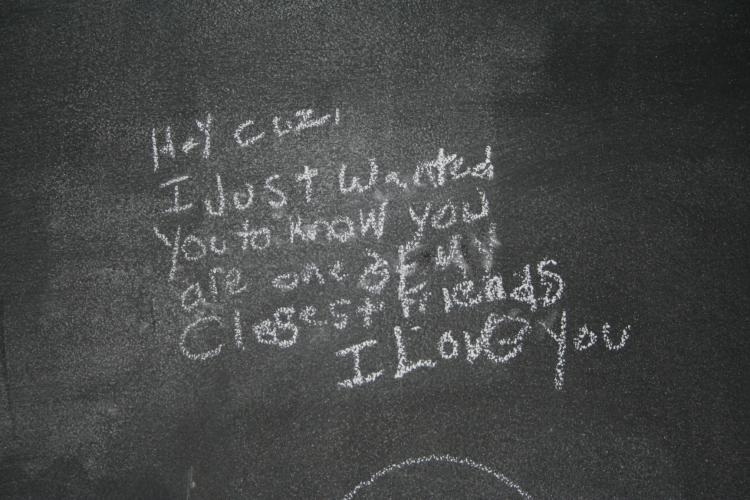 Hey cuz,
I Just wanted
you to know you
are one of my
Closest friends
I Love You